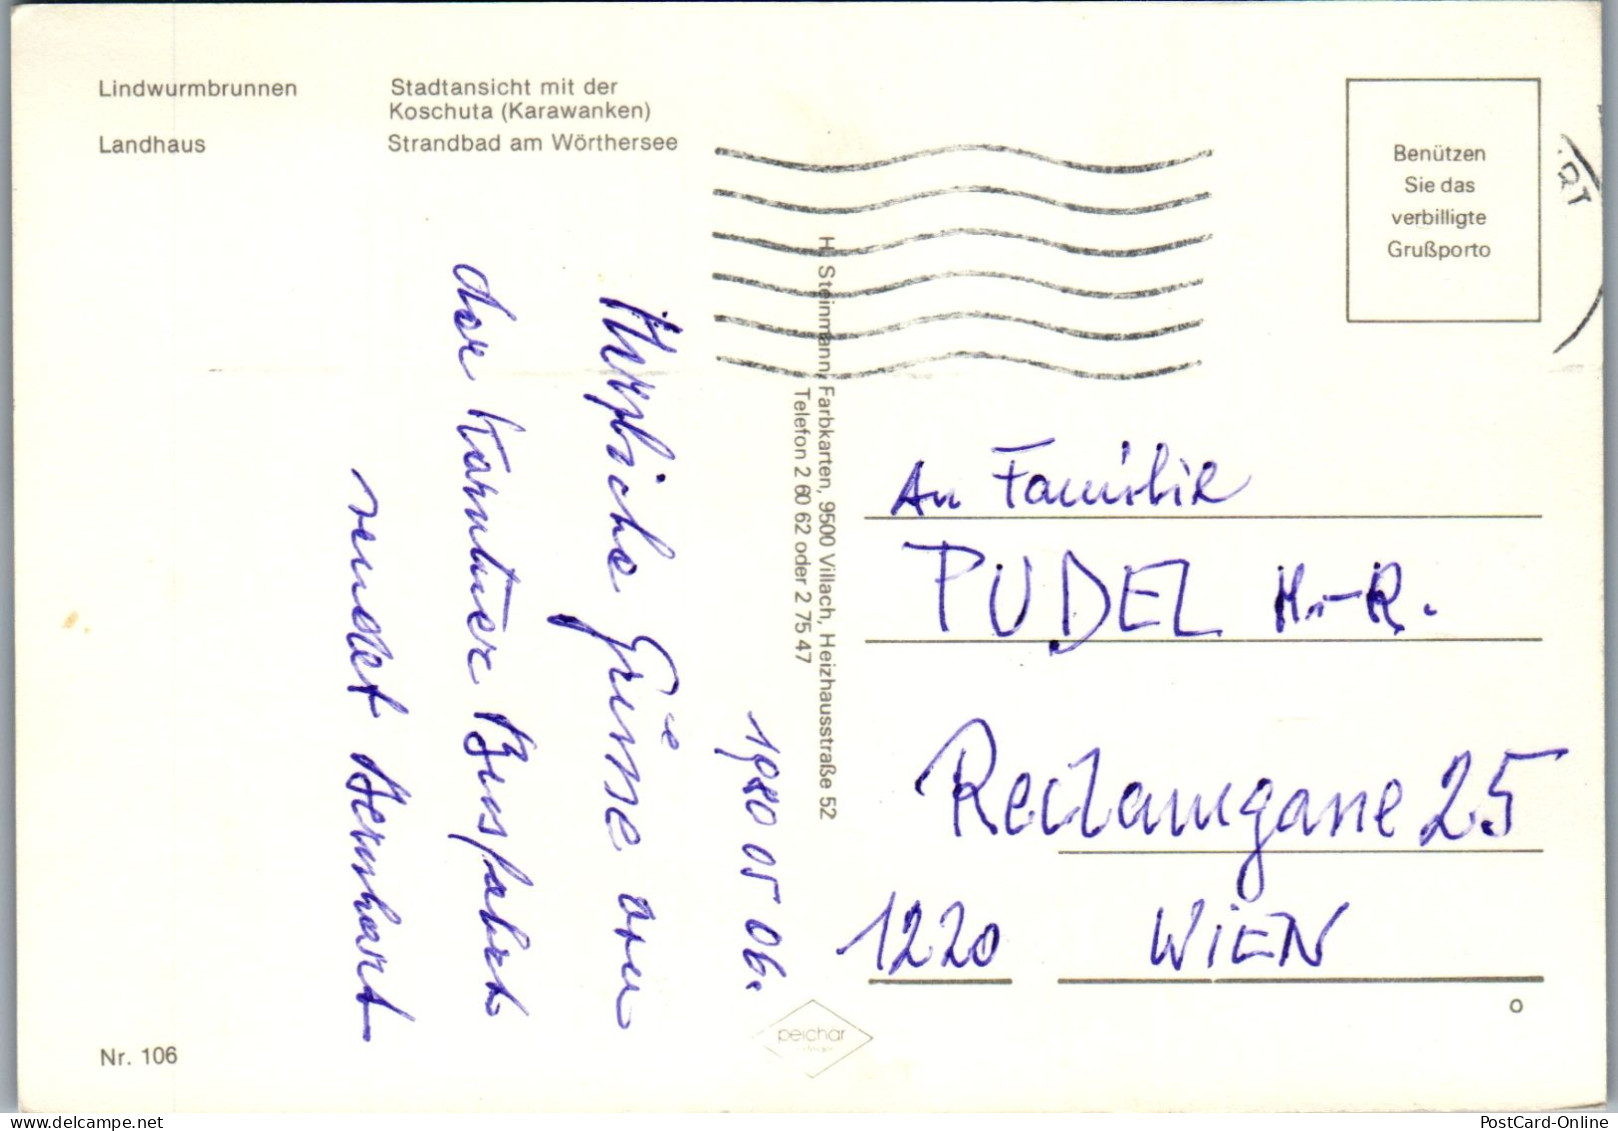 Lindwurmbrunnen
Landhaus
Stadtansicht mit der
Koschuta (Karawanken)
Strandbad am Wörthersee
Benützen
Sie das
verbilligte
Grußporto
RT
H. Steinmann, Farbkarten, 9500 Villach, Heizhausstraße 52
Telefon 2 60 62 oder 2 75 47
1980 05 06.
Herzliche Grüsse von
der Kärntner Busfahrt
sendet Bernhart
An Familie
PUDEL H.-R.
Reclamgasse 25
1220 WIEN
peichar
Nr. 106
PostCard-Online